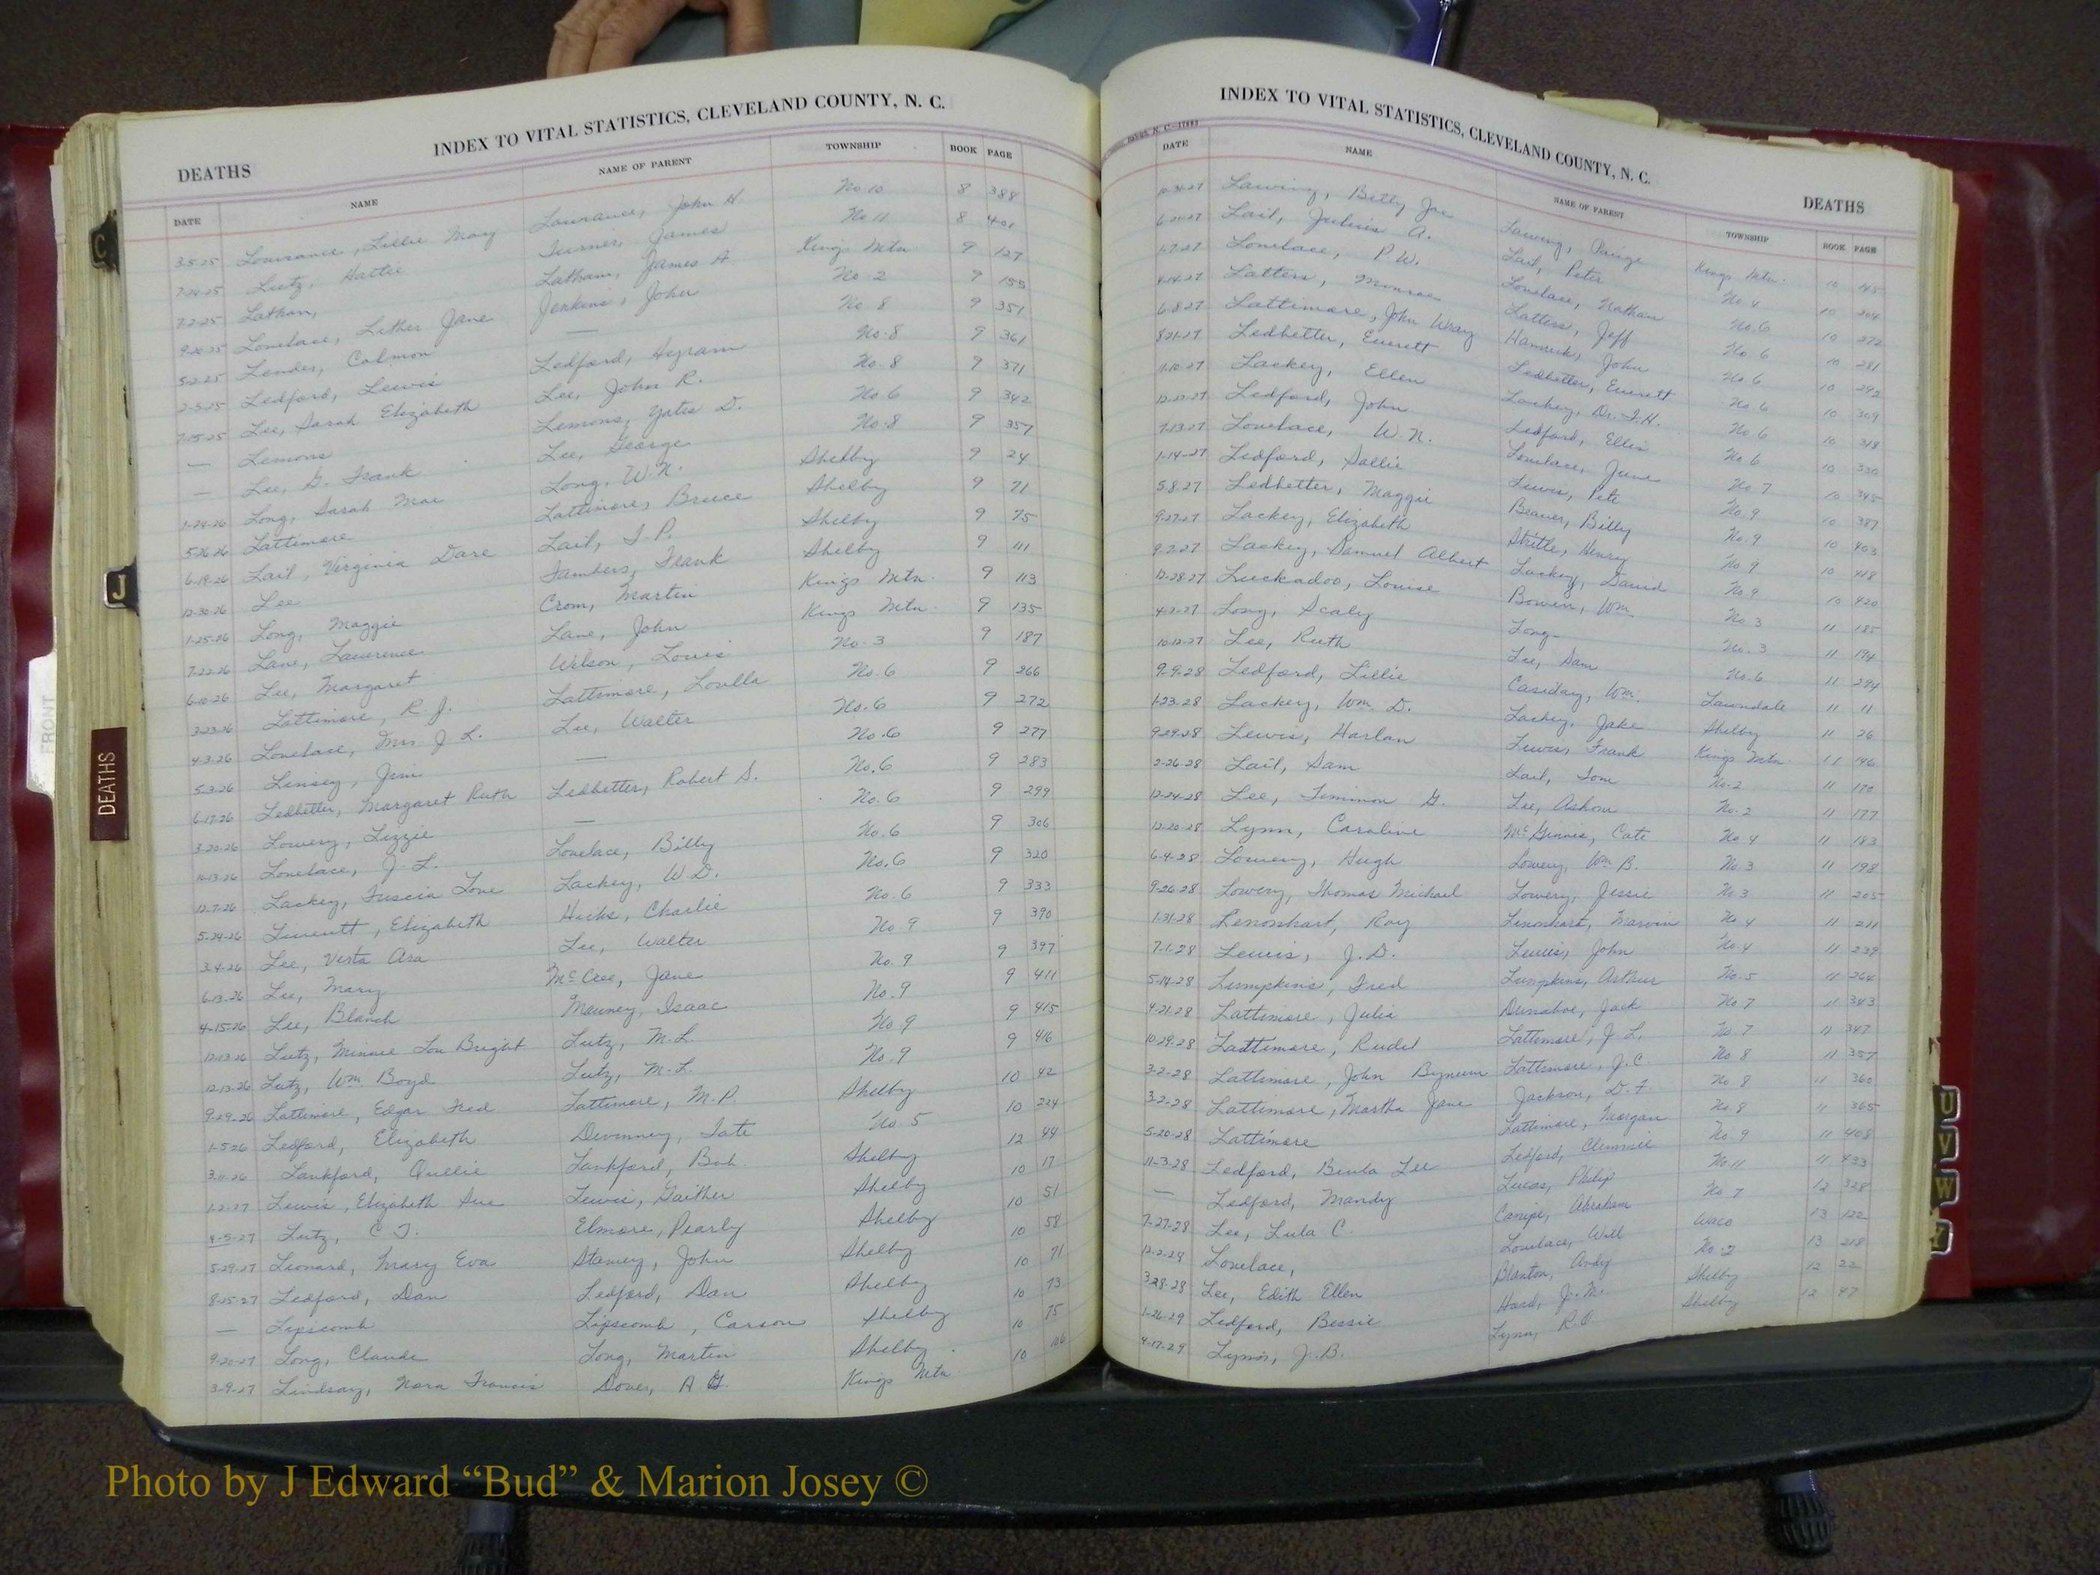 INDEX TO VITAL STATISTICS, CLEVELAND COUNTY, N. C.
DEATHS
DATE NAME NAME OF PARENT TOWNSHIP BOOK PAGE
3-5-25 Lowrance, Lillie May Lowrance, John H. No. 10 8 388
7-24-25 Lutz, Hattie Turner, James No 11 8 401
7-2-25 Lathan, Latham, James A Kings Mtn. 9 127
9-20-25 Lovelace, Lither Jane Jenkins, John No. 2 9 155
5-2-25 Lender, Colmon — No. 8 9 351
2-5-25 Ledford, Lewis Ledford, Hyram No. 8 9 361
7-15-25 Lee, Sarah Elizabeth Lee, John R. No. 8 9 371
— Lemons Lemons, Yates D. No. 6 9 342
— Lee, G. Frank Lee, George No. 8 9 357
1-24-26 Long, Sarah Mae Long, W. N. Shelby 9 24
5-26-26 Lattimore Lattimore, Bruce Shelby 9 71
6-19-26 Lail, Virginia Dare Lail, I. P. Shelby 9 75
12-30-26 Lee Frank Shelby 9 111
1-25-26 Long, Maggie Crom, Martin Kings Mtn. 9 113
7-22-26 Lane, Lawrence Lane, John Kings Mtn. 9 135
6-10-26 Lee, Margaret Wilson, Louis No. 3 9 187
3-23-26 Lattimore, R. J. Lattimore, Louilla No. 6 9 266
4-3-26 Lovelace, Mrs J. L. Lee, Walter No. 6 9 272
5-3-26 Linsey, Jim — No. 6 9 277
6-17-26 Ledbetter, Margaret Ruth Ledbetter, Robert S. No. 6 9 283
3-20-26 Lowery, Lizzie — No. 6 9 299
11-13-26 Lovelace, J. L. Lovelace, Billy No. 6 9 306
12-7-26 Lackey, Fuscia Love Lackey, W. D. No. 6 9 320
5-24-26 Elizabeth Hicks, Charlie No. 6 9 333
3-4-26 Lee, Verta Ara Lee, Walter No. 9 9 390
6-13-26 Lee, Mary McCree, Jane No. 9 9 397
4-15-26 Lee, Blanch Mauney, Isaac No. 9 9 411
12-13-26 Lutz, Minnie Lou Bright Lutz, M. L. No. 9 9 415
12-13-26 Lutz, Wm Boyd Lutz, M. L. No. 9 9 416
9-29-26 Lattimore, Edgar Fred Lattimore, M. P. Shelby 10 42
1-5-26 Ledford, Elizabeth Devenney, Tate No. 5 10 224
3-11-26 Lankford, Qullie Lankford, Bob. Shelby 12 44
1-2-27 Lewis, Elizabeth Sue Lewis, Gaither Shelby 10 17
4-5-27 Lutz, C T. Elmore, Pearly Shelby 10 51
5-29-27 Leonard, Mary Eva Stamey, John Shelby 10 58
8-25-27 Ledford, Dan Ledford, Dan Shelby 10 71
— Lipscomb Lipscomb, Carson Shelby 10 73
9-20-27 Long, Claude Long, Martin Shelby 10 75
3-9-27 Lindsay, Nora Francis Dover, A G. Kings Mtn 10 106
INDEX TO VITAL STATISTICS, CLEVELAND COUNTY, N. C.
DEATHS
DATE NAME NAME OF PARENT TOWNSHIP BOOK PAGE
10-31-27 Lawing, Betty Joe Lawing, Paige Kings Mtn. 10 145
6-20-27 Lail, Julius A. Lail, Peter No 4 10 204
1-7-27 Lovelace, P. W. Lovelace, Nathan No. 6 10 272
4-14-27 Latters, Monroe Latters, Jeff No. 6 10 281
6-8-27 Lattimore, John Wray Hamrick, John No. 6 10 292
8-21-27 Ledbetter, Everett Ledbetter, Everett No. 6 10 309
1-10-27 Lackey, Ellen Lackey, Dr. T. H. No 6 10 318
12-22-27 Ledford, John Ledford, Ellis No 6 10 330
7-13-27 Lovelace, W. N. Lovelace, June No 7 10 345
1-14-27 Ledford, Sallie Lewis, Pete No. 9 10 387
5-8-27 Ledbetter, Maggie Beaver, Billy No. 9 10 403
9-27-27 Lackey, Elizabeth Henry No 9 10 418
9-2-27 Lackey, Samuel Albert Lackey, David No. 9 10 420
12-28-27 Luckadoo, Louise Bowen, Wm No 3 11 185
4-2-27 Long, Scaly Long No. 3 11 194
10-12-27 Lee, Ruth Lee, Sam No. 6 11 294
9-9-28 Ledford, Lillie Casiday, Wm. Lawndale 11 11
1-23-28 Lackey, Wm. D. Lackey, Jake Shelby 11 26
9-29-28 Lewis, Harlan Lewis, Frank Kings Mtn. 11 146
2-26-28 Lail, Sam Lail, Tom No-2 11 170
12-24-28 Lee, Timmon G. Lee, Ashow No. 2 11 177
12-20-28 Lynn, Caroline McGinnis, Cate No 4 11 183
6-4-28 Lowery, Hugh Lowery, Wm B. No. 3 11 198
9-26-28 Lowery, Thomas Michael Lowery, Jessie No 3 11 205
1-31-28 Lenonhart, Roy Lenonhart, Marvin No 4 11 211
7-1-28 Lewis, J. D. Lewis, John No. 4 11 239
5-14-28 Lumpkins, Fred Lumpkins, Arthur No. 5 11 264
4-21-28 Lattimore, Julia Dunahoe, Jack No 7 11 343
10-29-28 Lattimore, Rudel Lattimore, J. L. No 7 11 347
3-2-28 Lattimore, John Bynum Lattimore, J. C No 8 11 357
3-2-28 Lattimore, Martha Jane Jackson, D. F. No 8 11 360
5-20-28 Lattimore Lattimore, Morgan No. 8 11 365
11-3-28 Ledford, Beula Lee Ledford, Clemmie No. 9 11 408
— Ledford, Mandy Lucas, Philip No. 11 11 433
7-27-28 Lee, Lula C. Canipe, Abraham No 7 12 328
12-2-28 Lovelace, Lovelace, Will Waco 13 122
3-28-28 Lee, Edith Ellen Blanton, Andy No. 2 13 218
1-26-29 Ledford, Bessie Hord, J. M. Shelby 12 22
4-17-29 Lynn, J. B. Lynn, R. O. Shelby 12 47
C
J
DEATHS
FRONT
U
V
W
Y
Photo by J Edward “Bud” & Marion Josey ©